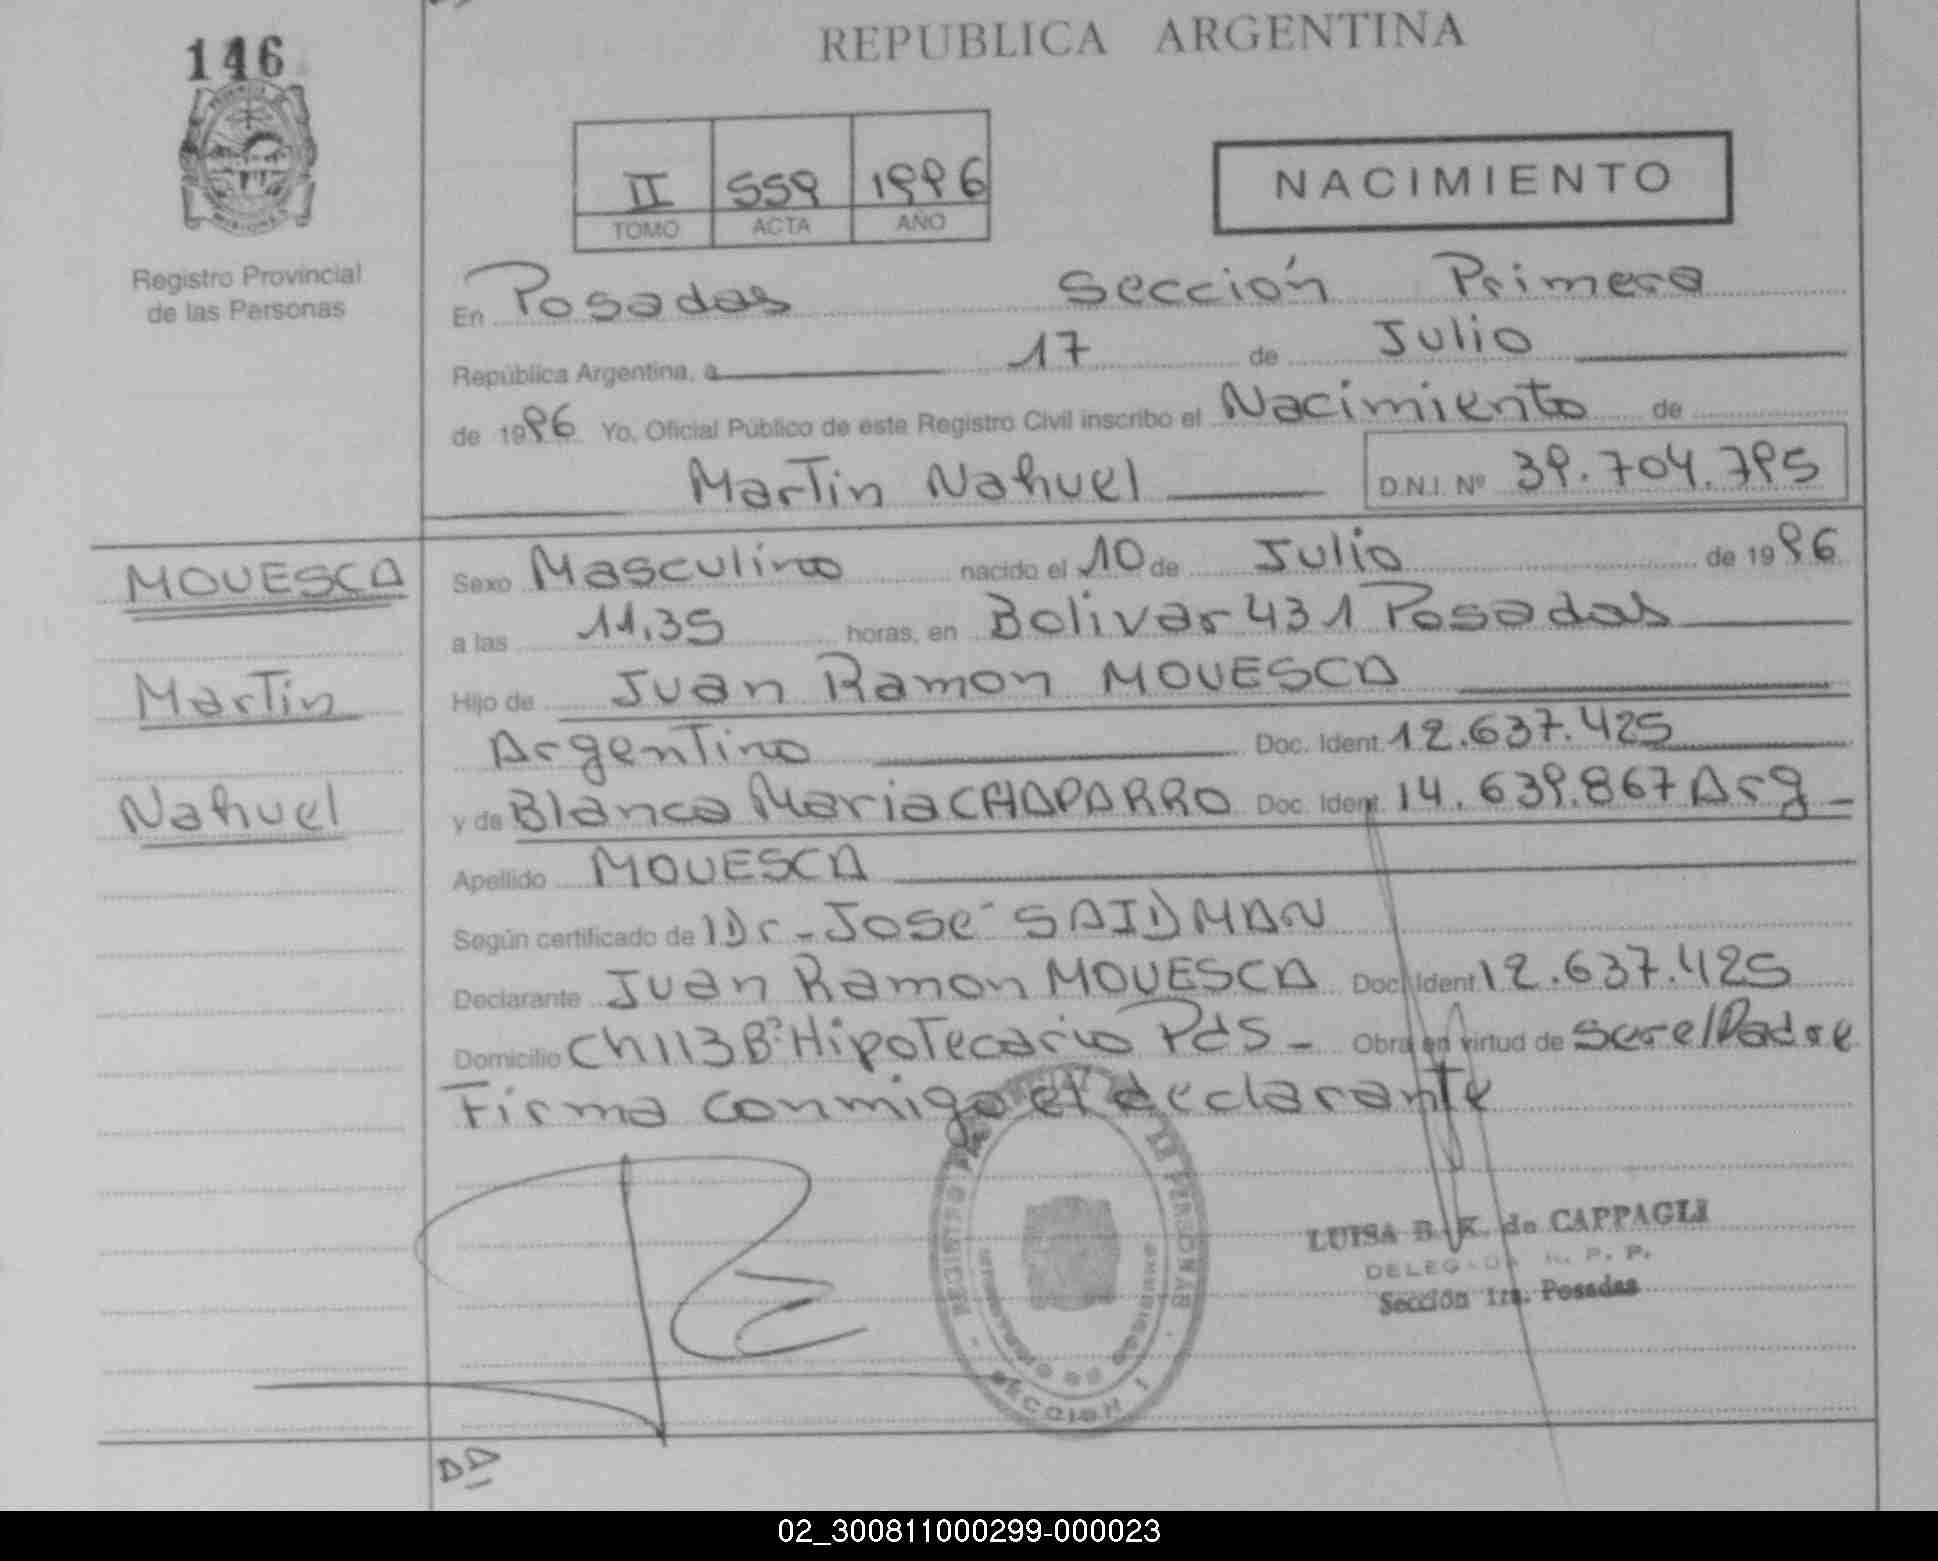 146
REPUBLICA ARGENTINA
II 559 1996
TOMO ACTA AÑO
NACIMIENTO
Registro Provincial
de las Personas
En Posadas Sección Primera
República Argentina, a 17 de Julio
de 1996 Yo, Oficial Público de este Registro Civil inscribo el Nacimiento de
Martin Nahuel D.N.I. Nº 39.704.795
MOUESCA
Martin
Nahuel
Sexo Masculino nacido el 10 de Julio de 1996
a las 11,35 horas, en Bolivar 431 Posadas
Hijo de Juan Ramon MOUESCA
Argentino Doc. Ident. 12.637.425
y de Blanca Maria CHAPARRO Doc. Ident. 14.639.867 Arg
Apellido MOUESCA
Según certificado de Dr. José SAIDMAN
Declarante Juan Ramon MOUESCA Doc. Ident. 12.637.425
Domicilio Ch 113 Bº Hipotecario Pds - Obra en virtud de ser el Padre
Firma conmigo el declarante
SECCION 1
LUISA B. K. de CAPPAGLI
DELEGADA R. P. P.
Sección 1ra. Posadas
DD
02_300811000299-000023